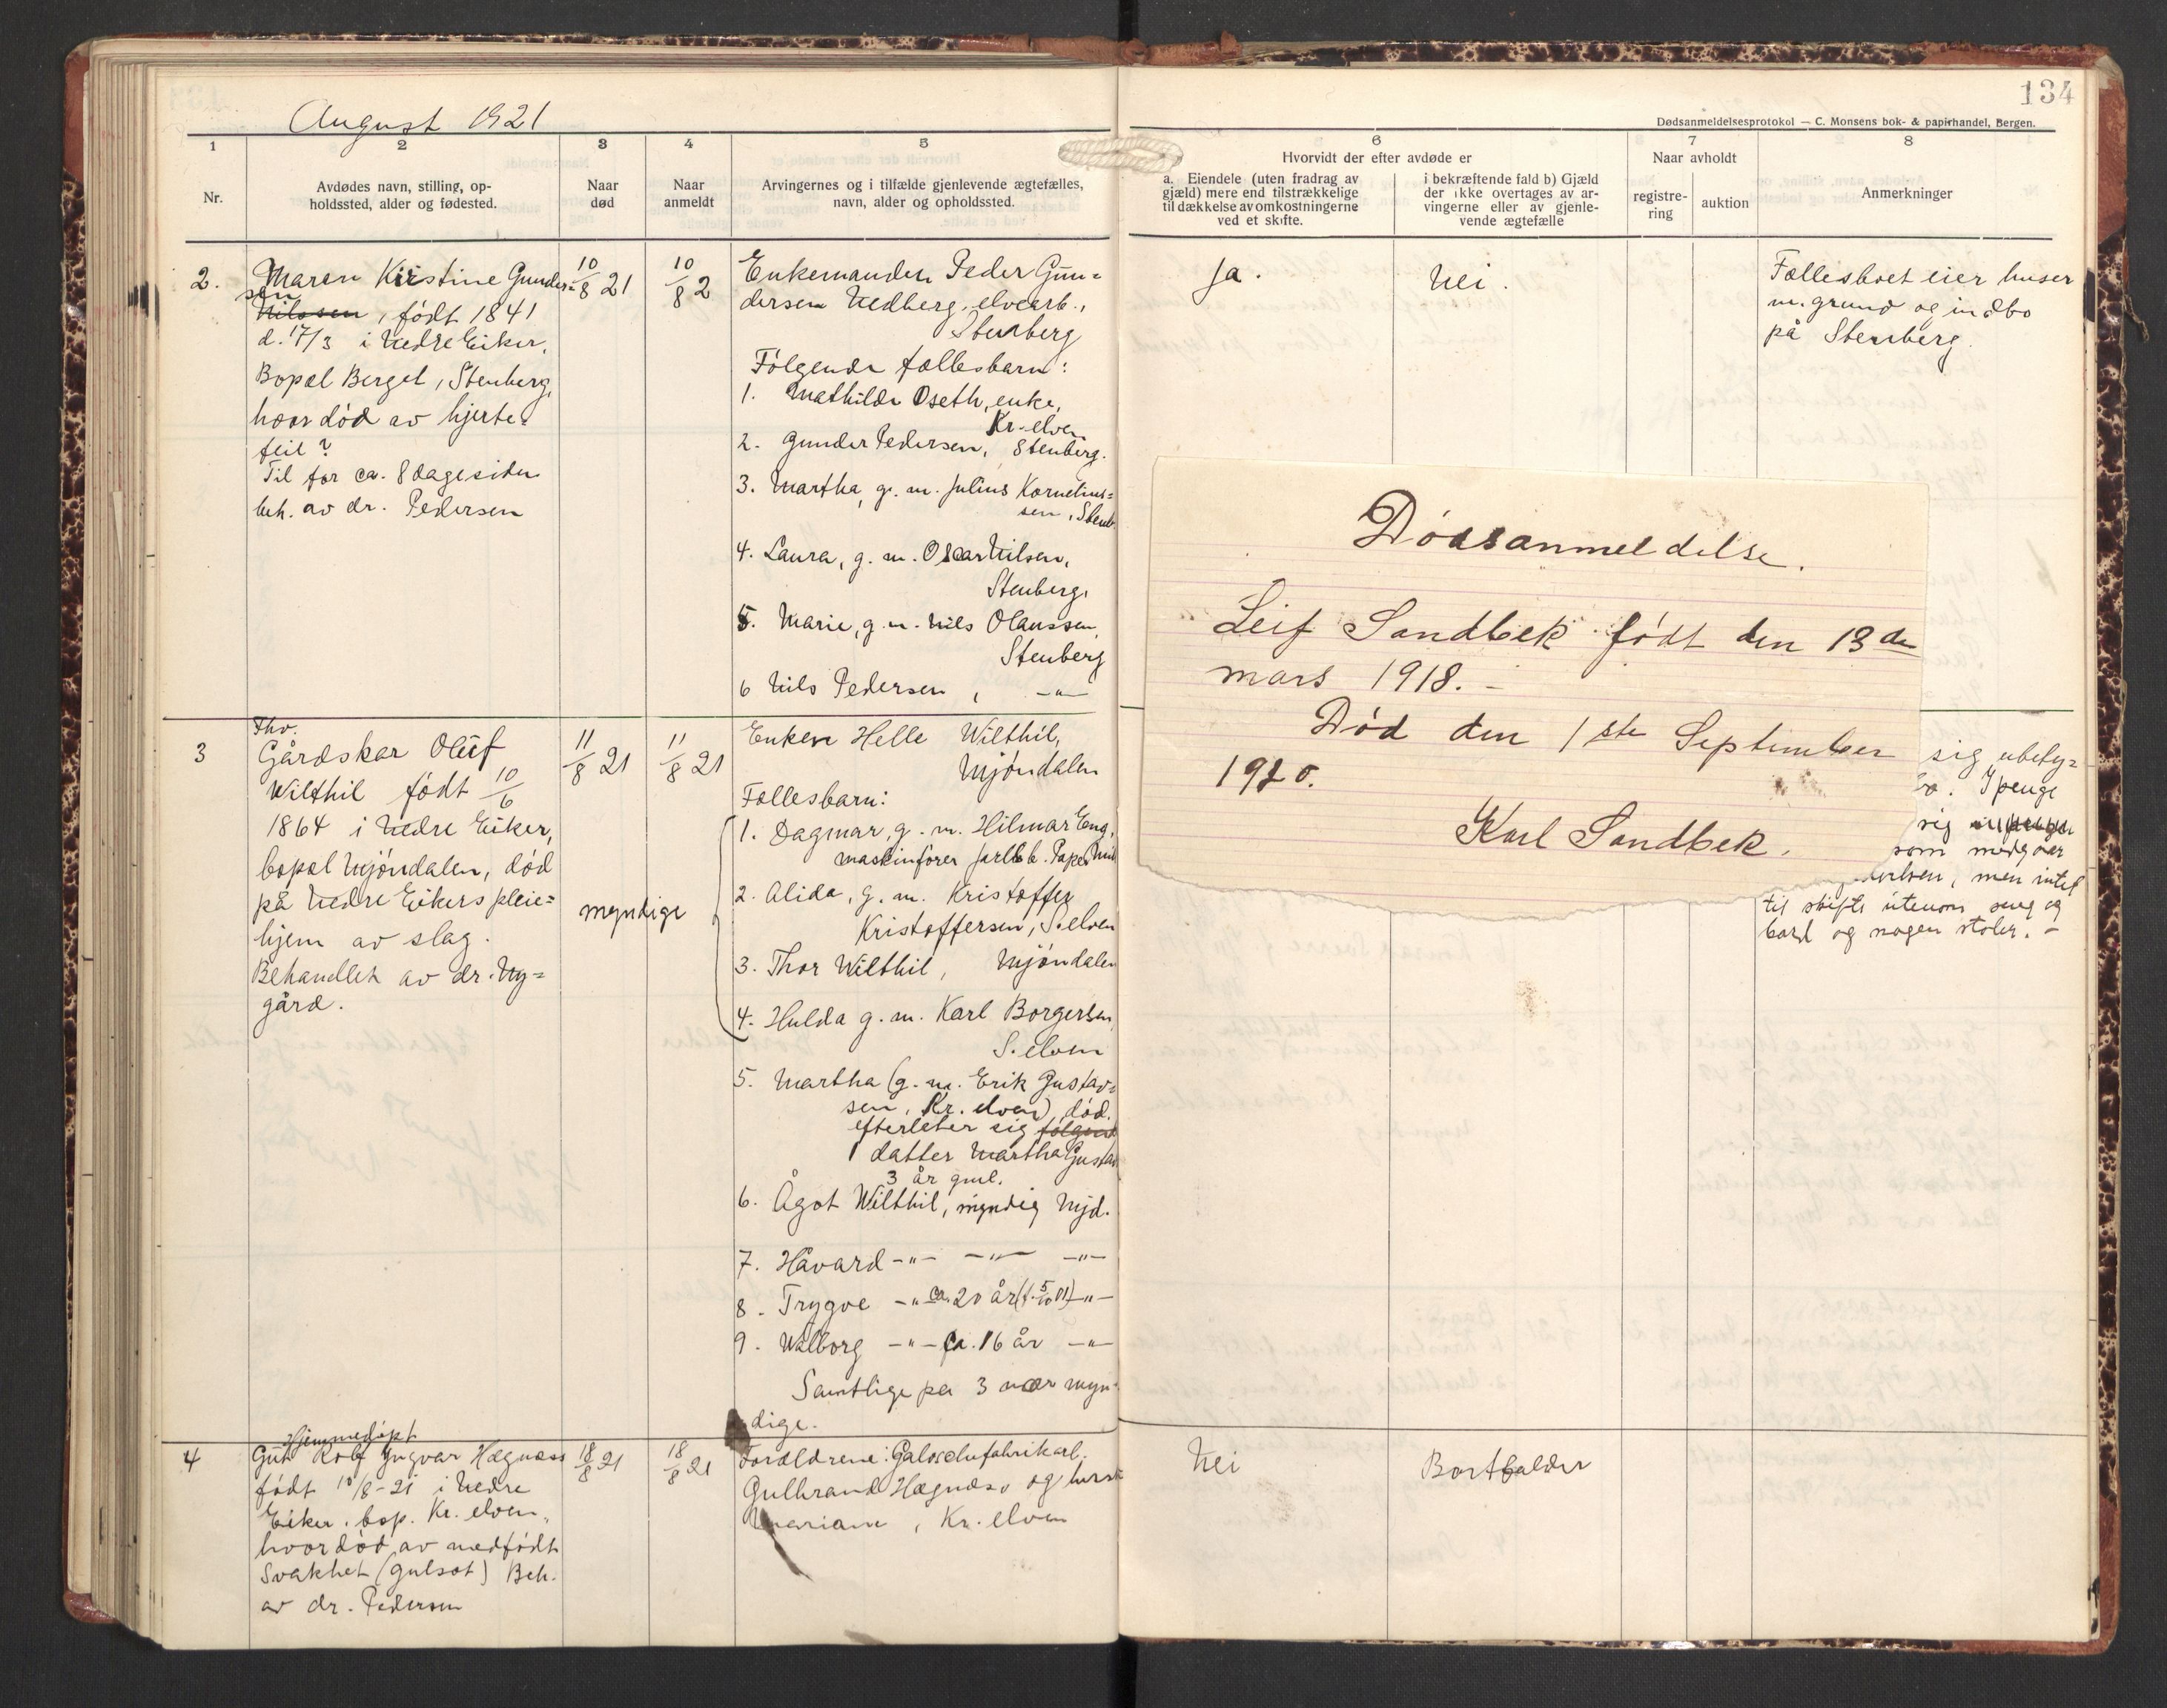 August 1921
134
Dødsanmeldelsesprotokol — C. Monsens bok- & papirhandel, Bergen.
1
2
3
4
5
6
7
8
Nr.
Avdødes navn, stilling, op-
holdssted, alder og fødested.
Naar
død
Naar
anmeldt
Arvingernes og i tilfælde gjenlevende ægtefælles,
navn, alder og opholdssted.
Hvorvidt der efter avdøde er
a. Eiendele (uten fradrag av
gjæld) mere end tilstrækkelige
til dækkelse av omkostningerne
ved et skifte.
i bekræftende fald b) Gjæld
der ikke overtages av ar-
vingerne eller av gjenle-
vende ægtefælle
Naar avholdt
registre-
ring
auktion
Anmerkninger
2.
Maren Kristine Gunder=
sen
Nilssen, født 1841
d. 17/3 i Nedre Eiker,
Bopæl Berget, Stenberg,
hvor død av hjerte=
feil?
Til for ca. 8 dage siden
beh. av dr. Pedersen
10/8 21
10/8 2
Enkemanden Peder Gun=
dersen Nedberg, elvearb.,
Stenberg
Følgende fællesbarn:
1. Mathilde Oseth, enke,
Kr-elven
2. Gunder Pedersen, Stenberg.
3. Martha, g. m. Julius Kornelius=
sen, Stenb
4. Laura, g. m. Oscar Nilsen,
Stenberg,
5. Marie, g. m. Nils Olaussen,
Stenberg
6 Nils Pedersen, -"-
Ja.
Nei.
Fællesboet eier huser
m. grund og indbo
på Stenberg.
3
Thv.
Gårdskar Oluf
Wilthil født 10/6
1864 i Nedre Eiker,
bopæl Mjøndalen, død
på Nedre Eikers pleie=
hjem av slag.
Behandlet av dr. Ny=
gård.
11/8 21
11/8 21
myndige
Enken Helle Wilthil,
Mjøndalen
Fællesbarn:
1. Dagmar, g. m. Hilmar Eng,
maskinfører
2. Alida, g. m. Kristoffer
Kristoffersen, S.elven
3. Thor Wilthil, Mjøndalen
4. Hulda g. m. Karl Borgersen,
S. elven
5. Martha (g. m. Erik Gustav=
sen, Kr. elven), død.
efterlater sig følgend
1 datter Martha Gustav
3 år gml.
6. Ågot Wilthil, myndig Mjd.
7. Håvard -"- -"- -"-
8. Trygve -"- ca. 20 år (f. 5/10 01) -"-
9. Walborg -"- ca. 16 år -"-
Samtlige på 3 nær myn=
dige.
Dødsanmeldelse.
Leif Sandbek født den 13 de
mars 1918. -
Død den 1ste September
1920.
Karl Sandbek.
sig ubety=
I penge
sig
som medgaar
men intet
til skifte utenom seng og
bord og nogen stoler. -
4
Hjemmedøpt
Gut Rolf Yngvar Hægnæss
født 10/8-21 i Nedre
Eiker. bop. Kr. elven,
hvor død av medfødt
Svakhet (gulsot) Beh.
av dr. Pedersen
18/8 21
18/8 21
Forældrene:
Gulbrand Hægnæss og hustr
Mariane, Kr. elven
Nei
Bortfalder